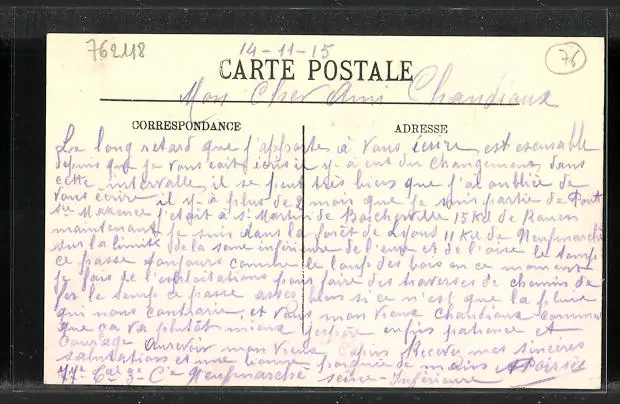 762118
14-11-15
76
CARTE POSTALE
Mon Cher Ami Chandioux
CORRESPONDANCE
ADRESSE
Le long retard que j'apporte à vous écrire est excusable
depuis que je vous écrit il y a eut du Changement dans
cette intervalle, il se peut très bien que j'ai oublié de
vous écrire il y a plus de 2 mois que je suis partie de Pont
Ste Maxence j'étais à St Martin de Boscherville 15 Kil de Rouen
maintenant je suis dans la forêt de Lyons 11 Kil de Neufmarché
sur la limite de la seine inférieure de l'eure et de l'oise le temps
ce passe toujours comme le loup des bois en ce moment
je fais de l'exploitations pour faire des traverses de chemin de
fer le temps ce passe assez bien si ce n'est que la pluie
qui nous contrarie, et vous mon vieux Chandioux comme
que ça va plutôt mieux j'espère enfin patience et
courage aurevoir mon vieux Recevez mes sincères
salutations et une bonne poignée de mains
77e 3e Cie Neufmarché seine-Inférieure